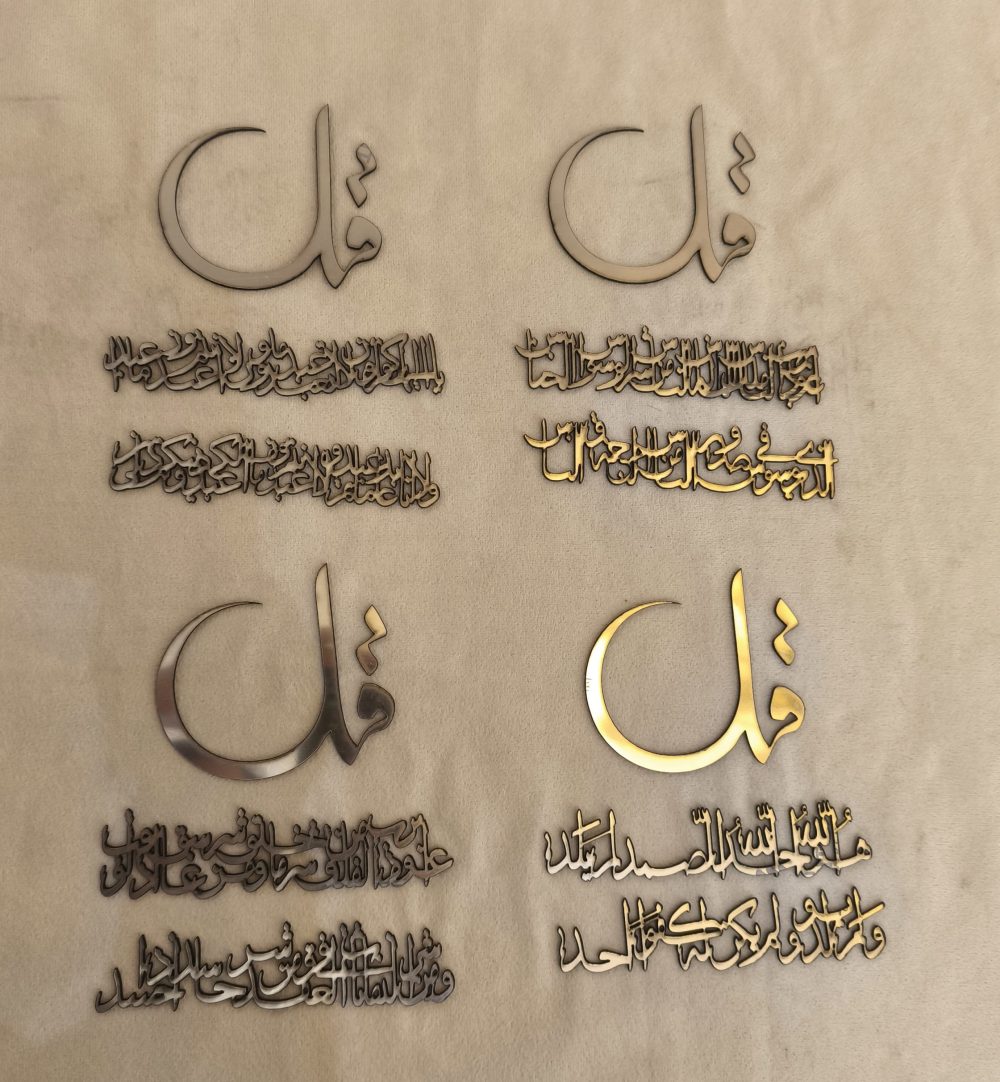 قل
اعوذ برب الناس ملك الناس اله الناس من شر الوسواس الخناس
الذي يوسوس في صدور الناس من الجنة و الناس
قل
يا ايها الكافرون لا اعبد ما تعبدون ولا انتم عابدون ما اعبد
ولا انا عابد ما عبدتم ولا انتم عابدون ما اعبد لكم دينكم ولي دين
قل
هو الله احد الله الصمد لم يلد
ولم يولد ولم يكن له كفوا احد
قل
اعوذ برب الفلق من شر ما خلق ومن شر غاسق اذا وقب
ومن شر النفاثات في العقد ومن شر حاسد اذا حسد